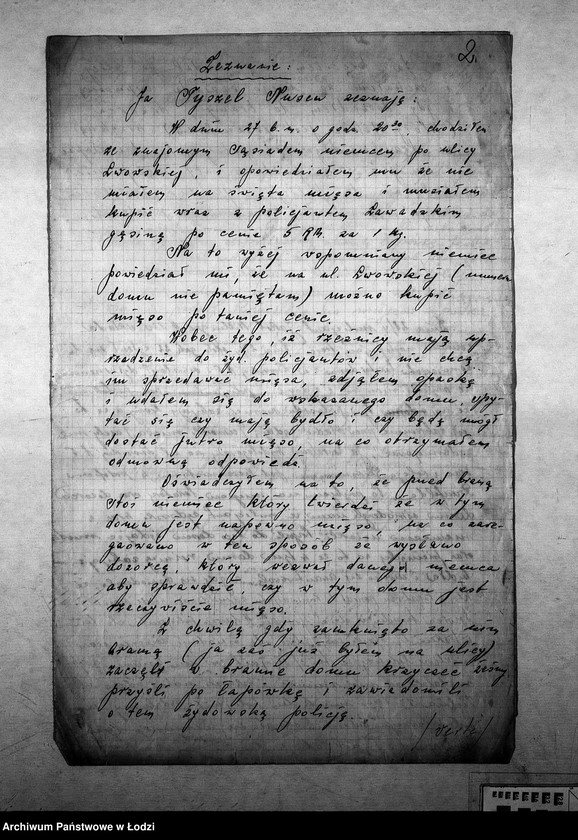 2.
Zeznanie:
Ja Tyszel Nusen zeznaję:
W dniu 27 b.m. o godz. 20³⁰ chodziłem
ze znajomym sąsiadem niemcem po ulicy
Lwowskiej, i opowiedziałem mu że nie
miałem na święta mięsa i musiałem
kupić wraz z policjantem Zawadzkim
gęsinę po cenie 5 RM. za 1 kg.
Na to wyżej wspomniany niemiec
powiedział mi, że na ul. Lwowskiej (numeru
domu nie pamiętam) można kupić
mięso po taniej cenie.
Wobec tego, iż rzeźnicy mają up-
rzedzenie do żyd. policjantów i nie chcą
im sprzedawać mięsa, zdjąłem opaskę
i udałem się do wskazanego domu, spy-
tać się czy mają bydło i czy będę mógł
dostać jutro mięso, na co otrzymałem
odmowną odpowiedź.
Oświadczyłem na to, że przed bramą
stoi niemiec który twierdzi że w tym
domu jest napewno mięso, na co zare-
agowano w ten sposób że wysłano
dozorcę, który wezwał danego niemca
aby sprawdzić, czy w tym domu jest
rzeczywiście mięso.
Z chwilą gdy zamknięto za nim
bramę (ja zaś już byłem na ulicy)
zaczęli w bramie domu krzyczeć żeśmy
przyszli po łapówkę i zawiadomili
o tem żydowską policję.
/verte/
Archiwum Państwowe w Łodzi